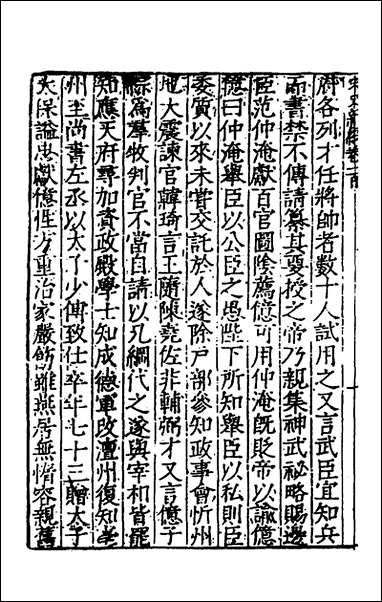 府各列才任將帥者數十人試用之又言武臣宜知兵
而書禁不傳請纂其要授之帝乃親集神武祕略賜邊
臣范仲淹獻百官圖陰薦億可用仲淹既貶帝以諭億
億曰仲淹舉臣以公臣之愚陛下所知舉臣以私則臣
委質以來未嘗交託於人遂除戶部參知政事會忻州
地大震諫官韓琦言王隨陳堯佐非輔弼才又言億子
綜為羣牧判官不當自請以兄綱代之遂與宰相皆罷
知應天府尋加資政殿學士知成德軍改澶州復知亳
州至尚書左丞以太子少傅致仕卒年七十三贈太子
太保謚忠獻億性方重治家嚴飭雖燕居無惰容親舊